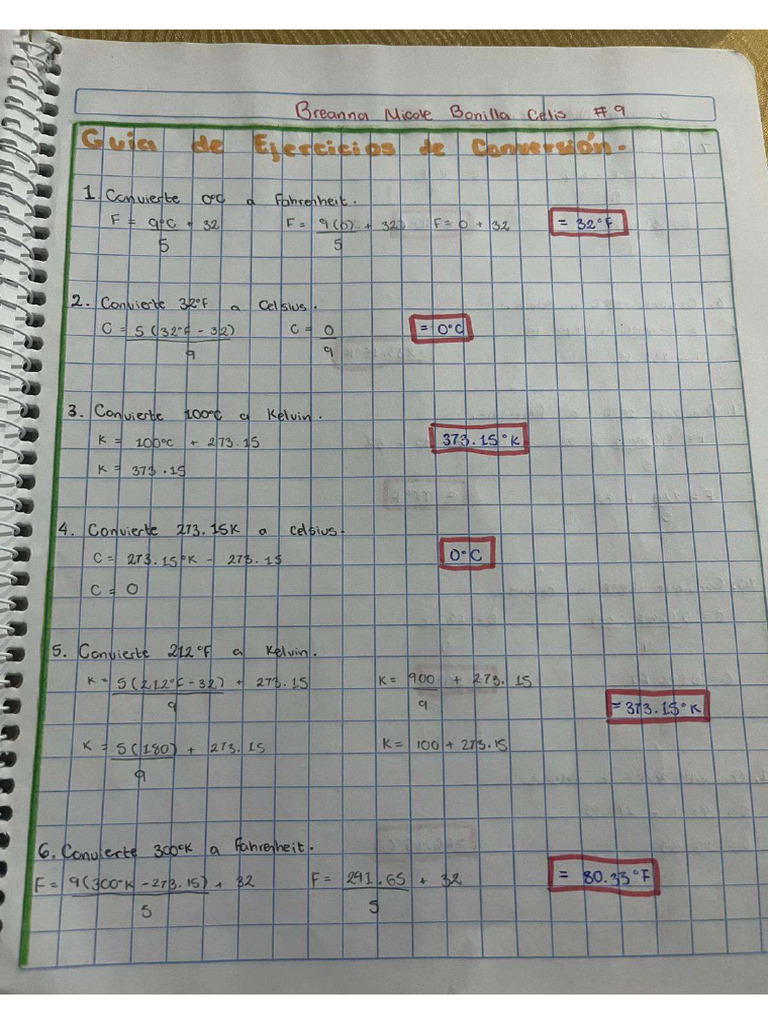 Breanna Nicole Bonilla Celis #9
Guia de Ejercicios de Conversión.
1 Convierte 0°C a Fahrenheit.
F = 9°C + 32 F = 9(0) + 32 F = 0 + 32 = 32°F
5 5
2. Convierte 32°F a Celsius.
C = 5(32°F - 32) C = 0 = 0°C
9 9
3. Convierte 100°C a Kelvin.
K = 100°C + 273.15 373.15°K
K = 373.15
4. Convierte 273.15K a celsius.
C = 273.15°K - 273.15 0°C
C = 0
5. Convierte 212°F a Kelvin.
K = 5(212°F - 32) + 273.15 K = 900 + 273.15
9 9 = 373.15°K
K = 5(180) + 273.15 K = 100 + 273.15
9
6. Convierte 300°K a Fahrenheit.
F = 9(300°K - 273.15) + 32 F = 291.65 + 32 = 80.33°F
5 5